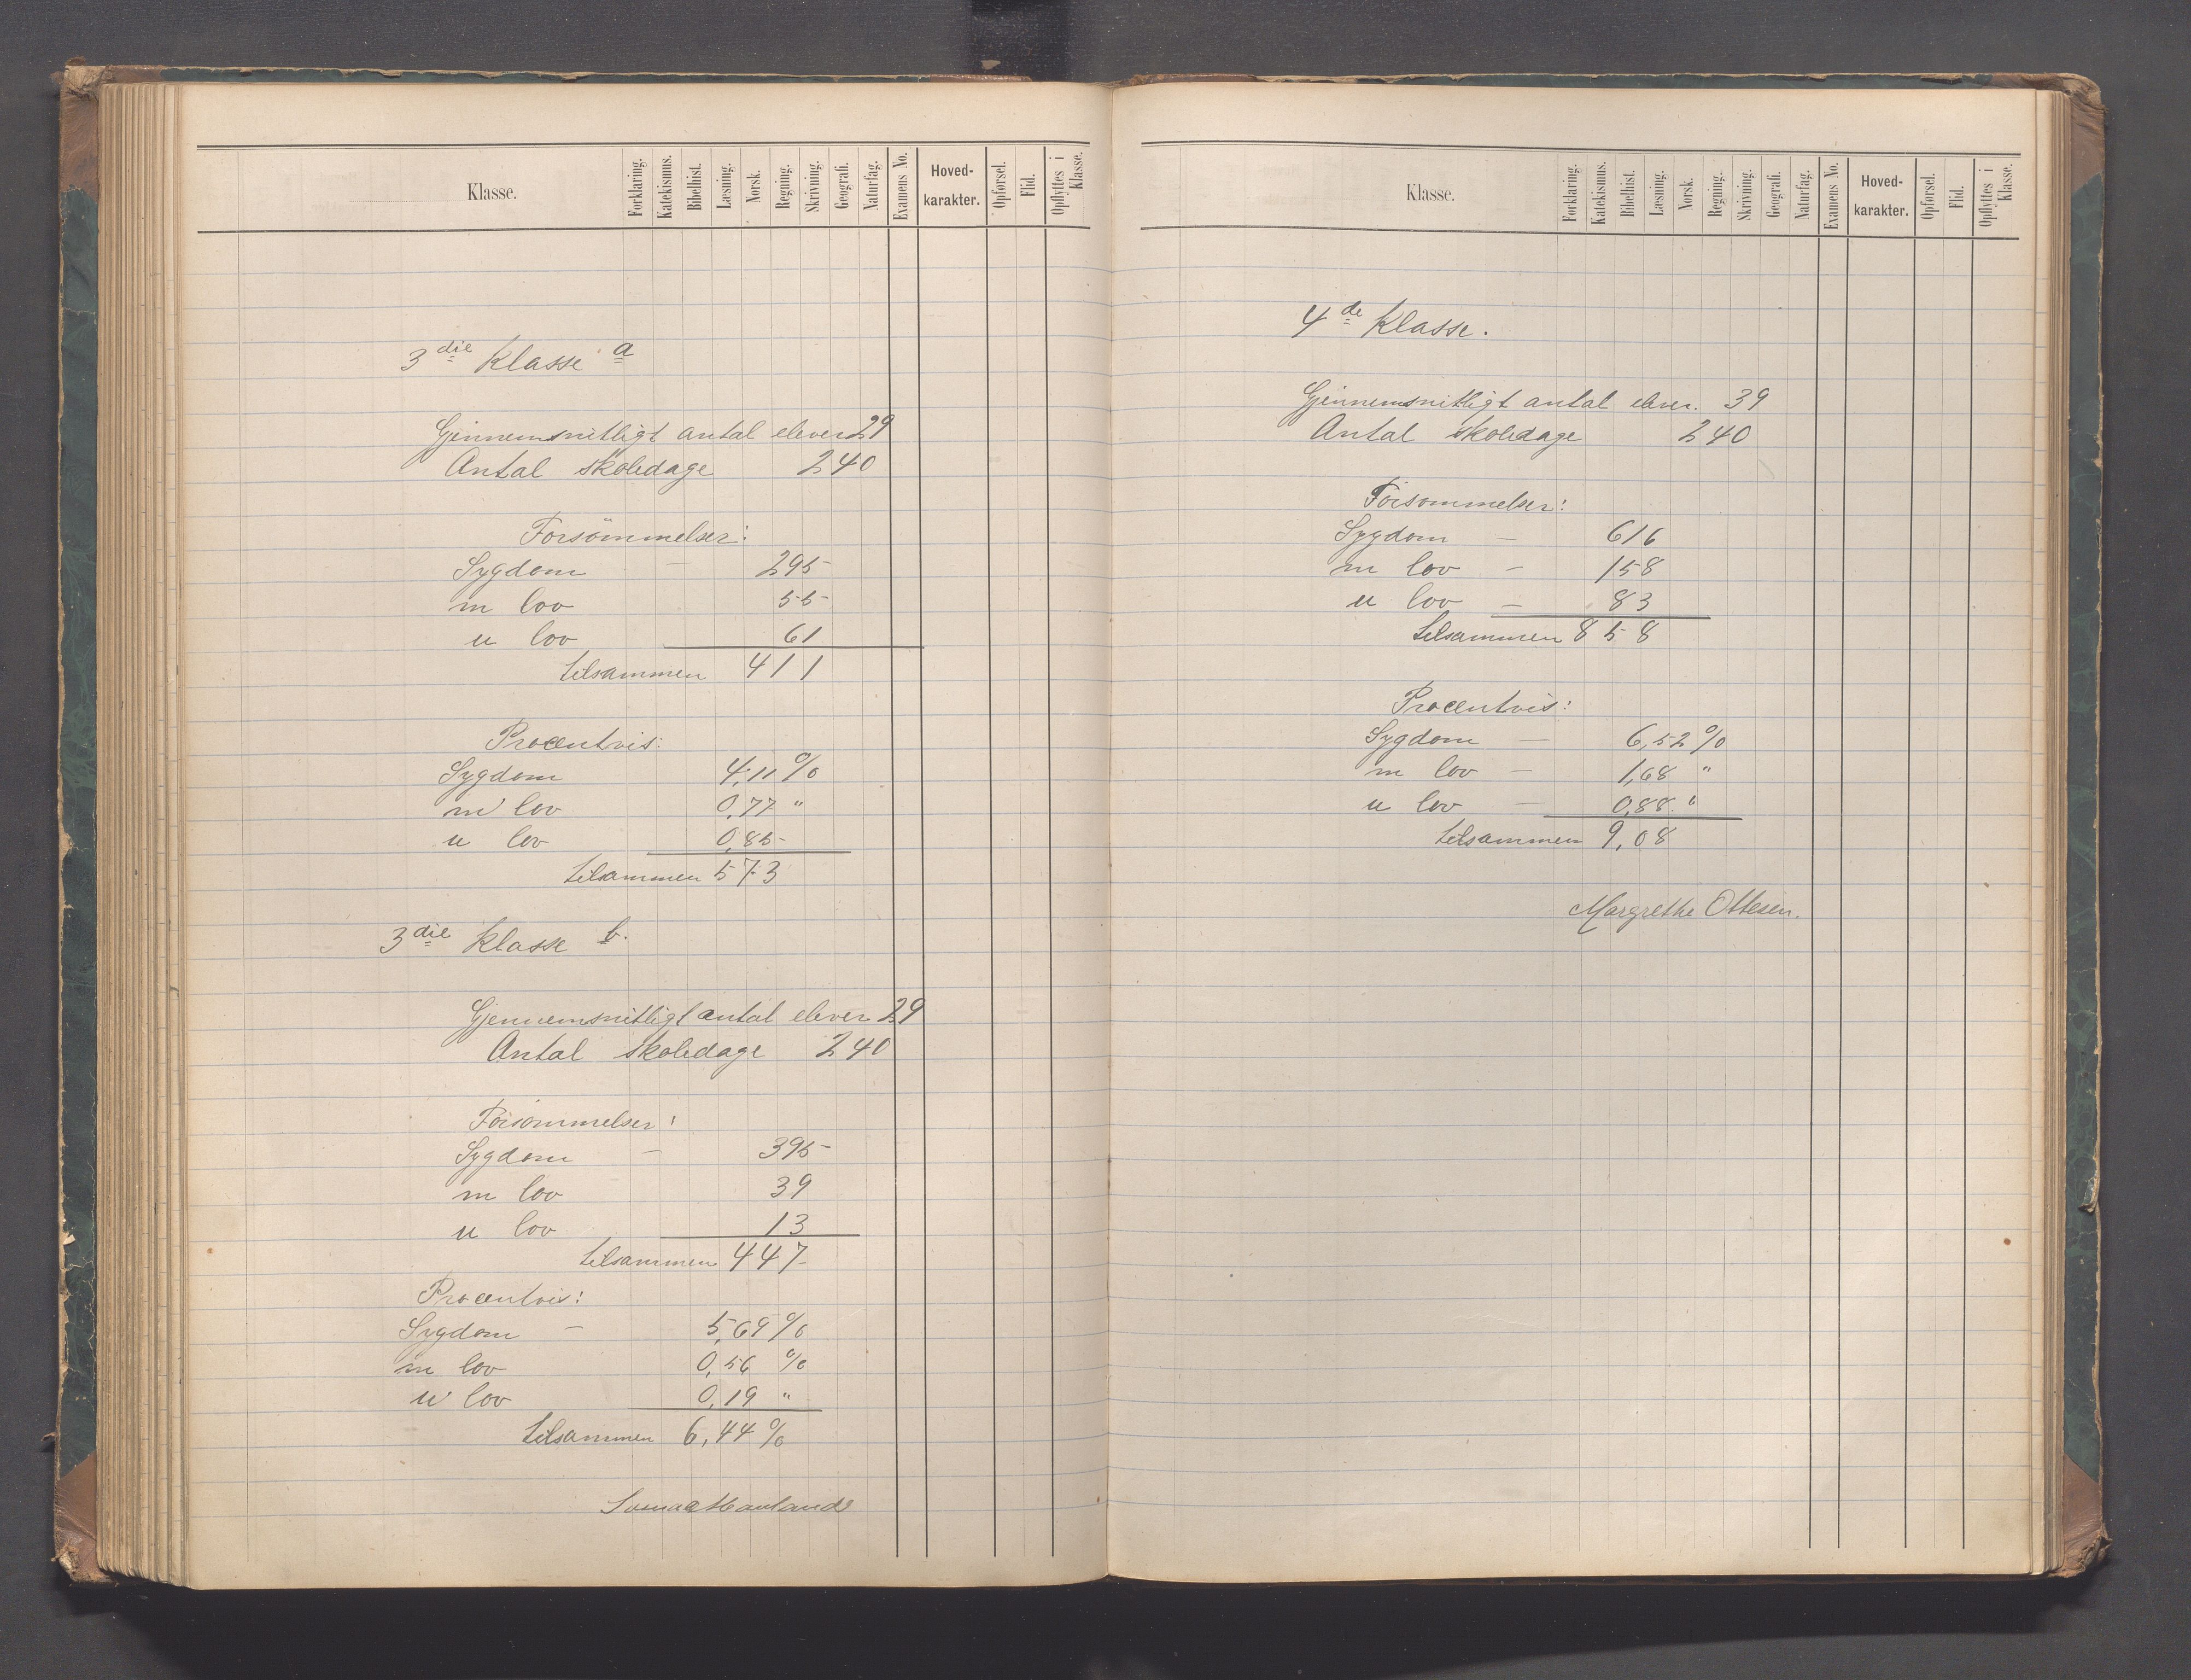 Klasse.
Forklaring.
Katekismus.
Bibelhist.
Læsning.
Norsk.
Regning.
Skrivning.
Geografi.
Naturfag.
Examens No.
Hoved-
karakter.
Opførsel.
Flid.
Opflyttes i
Klasse.
3die Klasse a
Gjennemsnitligt antal elever 29
Antal skoledage 240
Forsömmelser:
Sygdom — 295
m lov 55
u lov 61
tilsammen 411
Procentvis:
Sygdom 4,11 %
m lov 0,77 "
u lov 0,85
tilsammen 573
3die Klasse b.
Gjennemsnitligt antal elever 29
Antal skoledage 240
Forsömmelser:
Sygdom — 395
m lov 39
u lov 13
tilsammen 447
Procentvis:
Sygdom — 5,69 %
m lov 0,56 %
u lov 0,19 "
tilsammen 6,44 %
Klasse.
Forklaring.
Katekismus.
Bibelhist.
Læsning.
Norsk.
Regning.
Skrivning.
Geografi.
Naturfag.
Examens No.
Hoved-
karakter.
Opførsel.
Flid.
Opflyttes i
Klasse.
4de Klasse.
Gjennemsnitligt antal elever. 39
Antal skoledage 240
Forsommelser:
Sygdom — 616
m lov — 158
u lov — 83
tilsammen 858
Procentvis:
Sygdom — 6,52 %
m lov — 1,68 "
u lov — 0,88 "
tilsammen 9,08
Margrethe Ottesen.